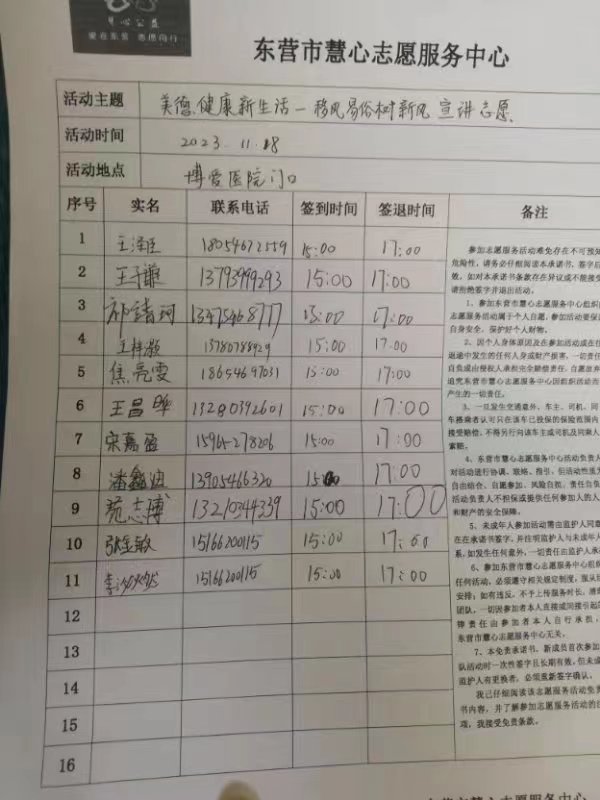 爱在东营 志愿同行
东营市慧心志愿服务中心
活动主题 美德健康新生活一移风易俗树新风宣讲志愿
活动时间 2023.11.18
活动地点 博爱医院门口
序号 实名 联系电话 签到时间 签退时间 备注
1 王泽臣 18054672559 15:00 17:00
2 王子謙 13793999293 15:00 17:00
3 祁靖珂 13475468777 15:00 17:00
4 王梓灏 13780788929 15:00 17:00
5 焦亮雯 18654697031 15:00 17:00
6 王昌晔 13280392601 15:00 17:00
7 宋嘉盈 15965278206 15:00 17:00
8 潘鑫迪 13905466320 15:00 17:00
9 范志博 13210344339 15:00 17:00
10 张金敏 15166200115 15:00 17:00
11 15166200115 15:00 17:00
12
13
14
15
16
参加志愿服务活动难免存在不可预知
危险性，请务必仔细阅读本承诺书，签字后
效。如对本承诺书条款存在异议或不能接受
请拒绝签字并退出活动。
1、参加东营市慧心志愿服务中心组织的
志愿服务活动属于个人自愿，参加活动要保证
自身安全，保护好个人财物。
2、因个人身体原因及在参加活动或在往
返途中发生的任何人身或财产损害，一切责任
自负或由侵权人承担完全赔偿责任。自愿放弃
追究东营市慧心志愿服务中心因组织活动而
产生的一切责任。
3、一旦发生交通意外，车主、司机、同
车搭乘者认可只在该车已投保的保险范围内
接受赔偿，不得另行向该车主或司机及同乘人
索赔。
4、东营市慧心志愿服务中心活动负责人
对活动进行协调、联络、指引，但活动性质为
自由结合、自愿参加、风险自担、责任自负
活动负责人不担保或提供任何参加人的人身
和财产的安全保障。
5、未成年人参加活动需由监护人同意
在在承诺书签字，并注明监护人与未成年人
系，如发生任何意外，一切责任由监护人承
6、参加东营市慧心志愿服务中心组织
任何活动，必须遵守相关规定制度，服从
安排；如有违反，不予上传服务时长，清
团队，一切因参加者本人直接或间接引起的
律责任由参加者本人自行承担，
东营市慧心志愿服务中心无关。
7、本免责承诺书，新成员首次参加
队活动时一次性签字且长期有效，但未成
监护人有更换者，必须重新签字确认。
我已仔细阅读该志愿服务活动免责
书内容，并了解参加志愿服务活动的注
项，我接受免责条款。
东营市慧心志愿服务中心